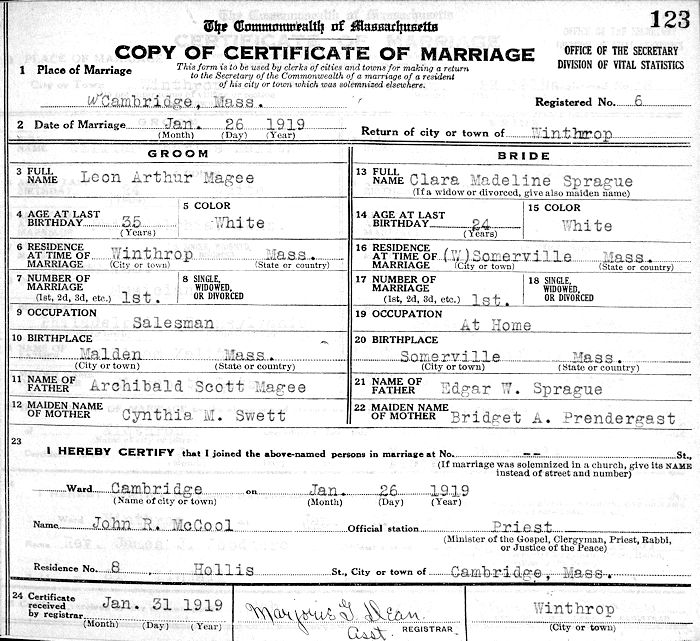 The Commonwealth of Massachusetts
123
COPY OF CERTIFICATE OF MARRIAGE
OFFICE OF THE SECRETARY
DIVISION OF VITAL STATISTICS
This form is to be used by clerks of cities and towns for making a return
to the Secretary of the Commonwealth of a marriage of a resident
of his city or town which was solemnized elsewhere.
1 Place of Marriage
W Cambridge, Mass.
Registered No. 6
2 Date of Marriage Jan. 26 1919 Return of city or town of Winthrop
(Month) (Day) (Year)
GROOM
3 FULL NAME Leon Arthur Magee
4 AGE AT LAST BIRTHDAY 35
(Years)
5 COLOR
White
6 RESIDENCE AT TIME OF MARRIAGE Winthrop Mass.
(City or town) (State or country)
7 NUMBER OF MARRIAGE
(1st, 2d, 3d, etc.) 1st.
8 SINGLE, WIDOWED, OR DIVORCED
9 OCCUPATION
Salesman
10 BIRTHPLACE
Malden Mass.
(City or town) (State or country)
11 NAME OF FATHER Archibald Scott Magee
12 MAIDEN NAME OF MOTHER Cynthia M. Swett
BRIDE
13 FULL NAME Clara Madeline Sprague
(If a widow or divorced, give also maiden name)
14 AGE AT LAST BIRTHDAY 24
(Years)
15 COLOR
White
16 RESIDENCE AT TIME OF MARRIAGE (W) Somerville Mass.
(City or town) (State or country)
17 NUMBER OF MARRIAGE
(1st, 2d, 3d, etc.) 1st.
18 SINGLE, WIDOWED, OR DIVORCED
19 OCCUPATION
At Home
20 BIRTHPLACE
Somerville Mass.
(City or town) (State or country)
21 NAME OF FATHER Edgar W. Sprague
22 MAIDEN NAME OF MOTHER Bridget A. Prendergast
23
I HEREBY CERTIFY that I joined the above-named persons in marriage at No. -- St.,
(If marriage was solemnized in a church, give its NAME
instead of street and number)
Ward Cambridge on Jan. 26 1919
(Name of city or town) (Month) (Day) (Year)
Name John R. McCool Official station Priest
(Minister of the Gospel, Clergyman, Priest, Rabbi,
or Justice of the Peace)
Residence No. 8 Hollis St., City or town of Cambridge, Mass.
24 Certificate received by registrar Jan. 31 1919
(Month) (Day) (Year)
Marjorie G. Dean
Asst. REGISTRAR
Winthrop
(City or town)